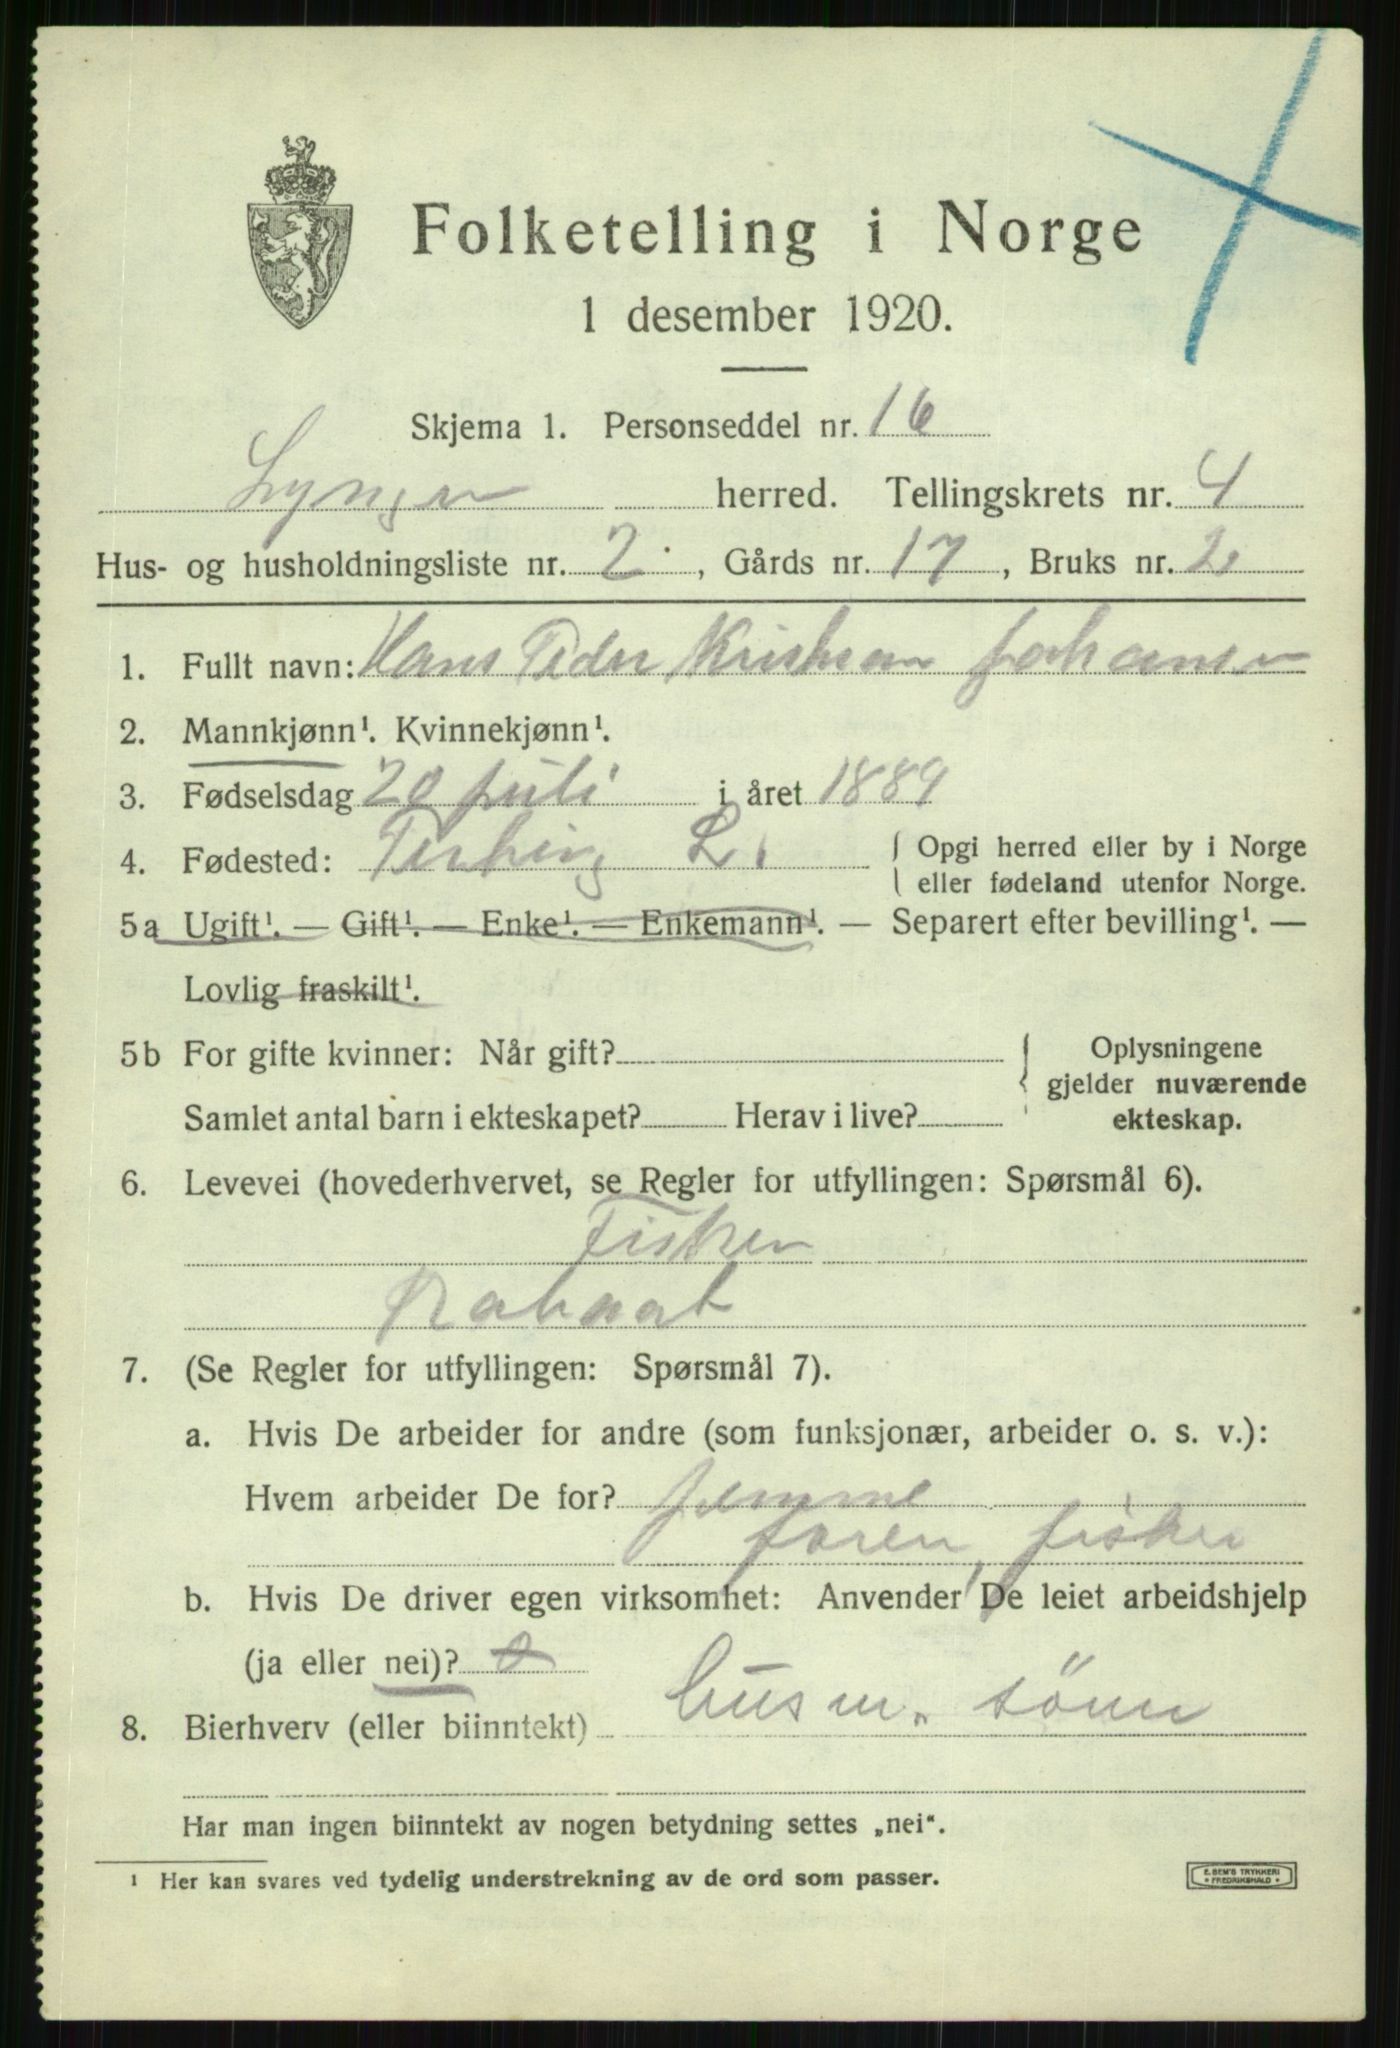 Folketelling i Norge
1 desember 1920.
Skjema 1. Personseddel nr. 16
Lyngen herred. Tellingskrets nr. 4
Hus- og husholdningsliste nr. 2, Gårds nr. 17, Bruks nr. 2
1. Fullt navn: Hans Peder Kristian Johansen
2. Mannkjønn¹. Kvinnekjønn¹.
3. Fødselsdag 20 juli i året 1889
4. Fødested: L. { Opgi herred eller by i Norge
eller fødeland utenfor Norge.
5a Ugift¹. — Gift¹. — Enke¹. — Enkemann¹. — Separert efter bevilling¹. —
Lovlig fraskilt¹.
5b For gifte kvinner: Når gift? { Oplysningene
gjelder nuværende
Samlet antal barn i ekteskapet? Herav i live? ekteskap.
6. Levevei (hovederhvervet, se Regler for utfyllingen: Spørsmål 6).
Fisker
7. (Se Regler for utfyllingen: Spørsmål 7).
a. Hvis De arbeider for andre (som funksjonær, arbeider o. s. v.):
Hvem arbeider De for? jemme
faren, fisker
b. Hvis De driver egen virksomhet: Anvender De leiet arbeidshjelp
(ja eller nei)?
8. Bierhverv (eller biinntekt) husm. sönn
Har man ingen biinntekt av nogen betydning settes „nei“.
¹ Her kan svares ved tydelig understrekning av de ord som passer.
E. SEM'S TRYKKERI
FREDRIKSHALD